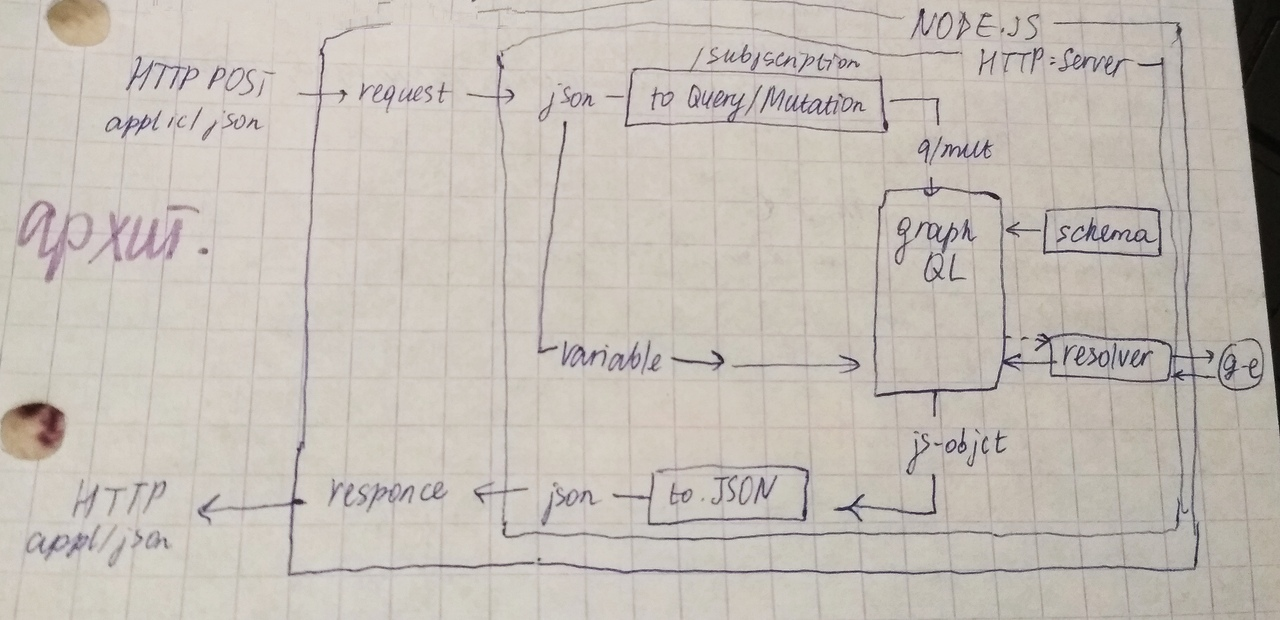 NODE.JS
HTTP-Server
HTTP POST
applic/json
request
json
/subscription
to Query/Mutation
q/mut
архит.
graph
QL
schema
variable
resolver
js-objct
HTTP
appl/json
responce
json
to.JSON